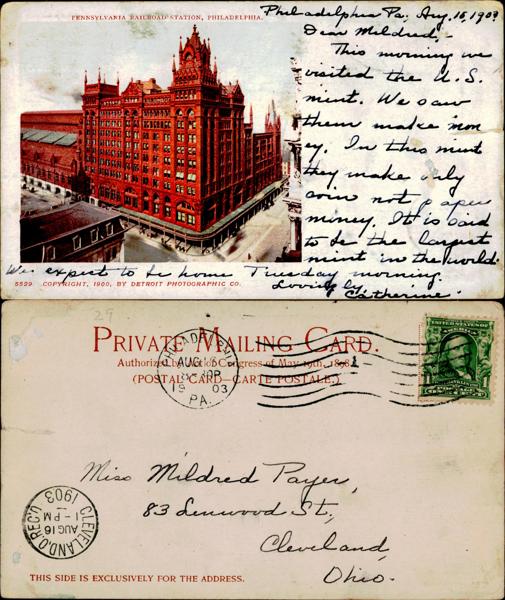 PENNSYLVANIA RAILROAD STATION, PHILADELPHIA.
Philadelphia Pa. Aug. 15, 1903
Dear Mildred,-
This morning we
visited the U.S.
mint. We saw
them make mon
ey. In this mint
they make only
coin not paper
money. It is said
to be the largest
mint in the world.
We expect to be home Tuesday morning.
Lovingly
Catherine.
5529 COPYRIGHT, 1900, BY DETROIT PHOTOGRAPHIC CO.
29
PRIVATE MAILING CARD.
Authorized by Act of Congress of May 19th, 1898.
(POSTAL CARD—CARTE POSTALE.)
PHILADELPHIA
AUG
19 03
PA.
1
UNITED STATES OF AMERICA
1 1
Miss Mildred Payer,
83 Linwood St.,
Cleveland,
Ohio.
CLEVELAND, O. REC'D
AUG 16
1-PM
1903
THIS SIDE IS EXCLUSIVELY FOR THE ADDRESS.